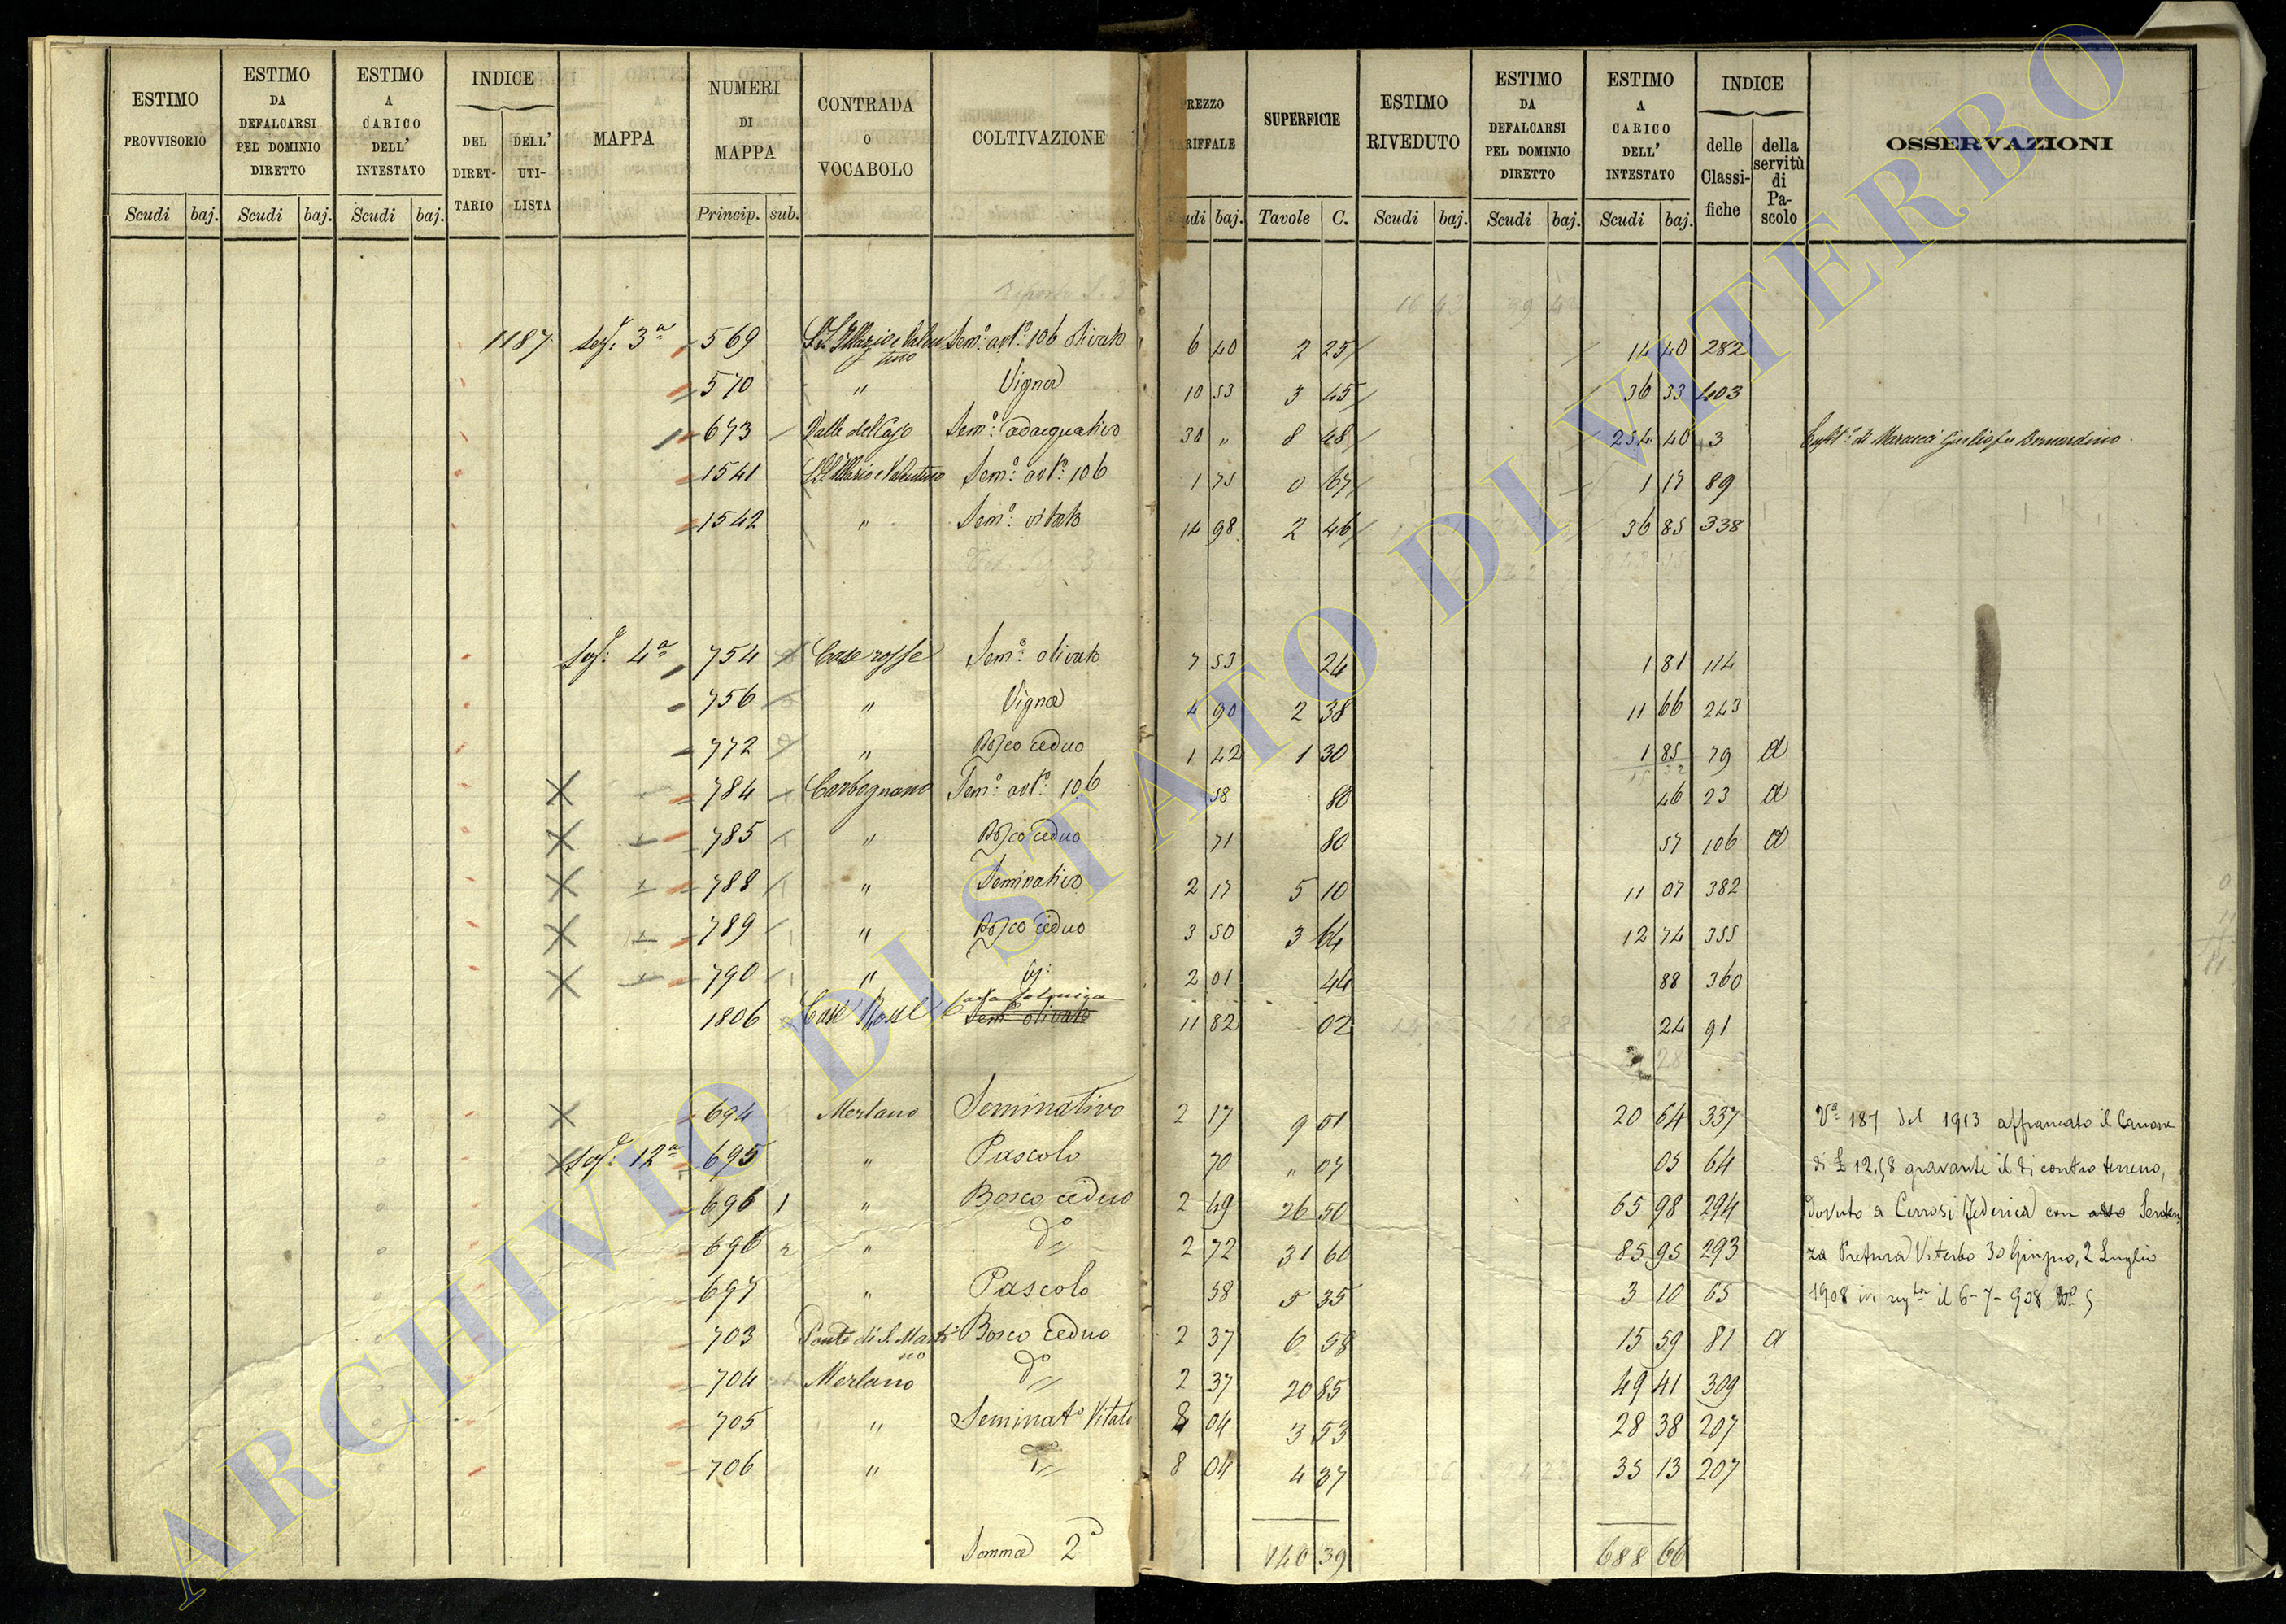 ESTIMO PROVVISORIO | ESTIMO DA DEFALCARSI PEL DOMINIO DIRETTO | ESTIMO A CARICO DELL' INTESTATO | INDICE DEL DIRETTARIO | DELL' UTILISTA | MAPPA | NUMERI DI MAPPA | CONTRADA O VOCABOLO | COLTIVAZIONE | PREZZO TARIFFALE | SUPERFICIE | ESTIMO RIVEDUTO | ESTIMO DA DEFALCARSI PEL DOMINIO DIRETTO | ESTIMO A CARICO DELL' INTESTATO | INDICE delle Classifiche | della servitù di Pascolo | OSSERVAZIONI
Scudi baj. | Scudi baj. | Scudi baj. | Princip. sub. | Scudi baj. | Tavole C. | Scudi baj. | Scudi baj. | Scudi baj.
1187 Sez: 3ª 569 Sem.º art.º 106 olivato 6 40 2 25 14 40 282
570 " Vigna 10 53 3 45 36 33 403
673 Valle dell'Ajo Sem.º adacquativo 30 " 8 48 254 40 3 di Marcucci Giulio fu Bernardino
1541 SS. Ilario e Valentino Sem.º art.º 106 1 75 0 67 1 17 89
1542 " Sem.º vitato 14 98 2 46 36 85 338
Sez: 4ª 754 Case rosse Sem.º olivato 7 53 24 1 81 114
756 " Vigna 4 90 2 38 11 66 243
772 " Bosco ceduo 1 42 1 30 1 85 79 a
784 Carbognano Sem.º art.º 106 58 80 46 23 a
785 " Bosco ceduo 71 80 57 106 a
788 " Seminativo 2 17 5 10 11 07 382
789 " Bosco ceduo 3 50 3 64 12 74 355
790 " 2 01 44 88 360
1806 Case Rosse Casa colonica Sem.º olivato 11 82 02 24 91
694 Merlano Seminativo 2 17 9 51 20 64 337 Vª 187 del 1913 affrancato il Canone
Sez: 12ª 695 " Pascolo 70 " 07 05 64 di £ 12,58 gravante il di contro terreno,
696 1 " Bosco ceduo 2 49 26 50 65 98 294 dovuto a Cerrosi Federica con atto Senten
696 2 " dº 2 72 31 60 85 95 293 za Pretura Viterbo 30 Giugno, 2 Luglio
697 " Pascolo 58 5 35 3 10 65 1908 ivi regta il 6-7-908 Nº 5
703 Ponte di S. Martino Bosco ceduo 2 37 6 58 15 59 81 a
704 Merlano dº 2 37 20 85 49 41 309
705 " Seminatº Vitato 8 04 3 53 28 38 207
706 " dº 8 04 4 37 35 13 207
Somma 2ª 140 39 688 66
ARCHIVIO DI STATO DI VITERBO